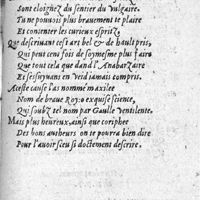 Sont eloignez du sentier du vulgaire.
Tu ne pouuois plus brauement te plaire
Et contenter les curieux espritz,
Que descriuant cest art bel & de hault pris,
Qui peut cent fois de soymesme plus faire
Que tout cela que dand l'Anabarzaire
Et ses suyuans en ucid iamais compris.
A ceste cause i'as nommé maxilee
Nom de braue Roy: o exquise science,
Qui soubz tel nom par Gaulle uentilente.
Mais plus heureux, ainsi que coriphee
Des bons autheurs on te pourra bien dire
Pour l'auoir seu si doctement descrire.